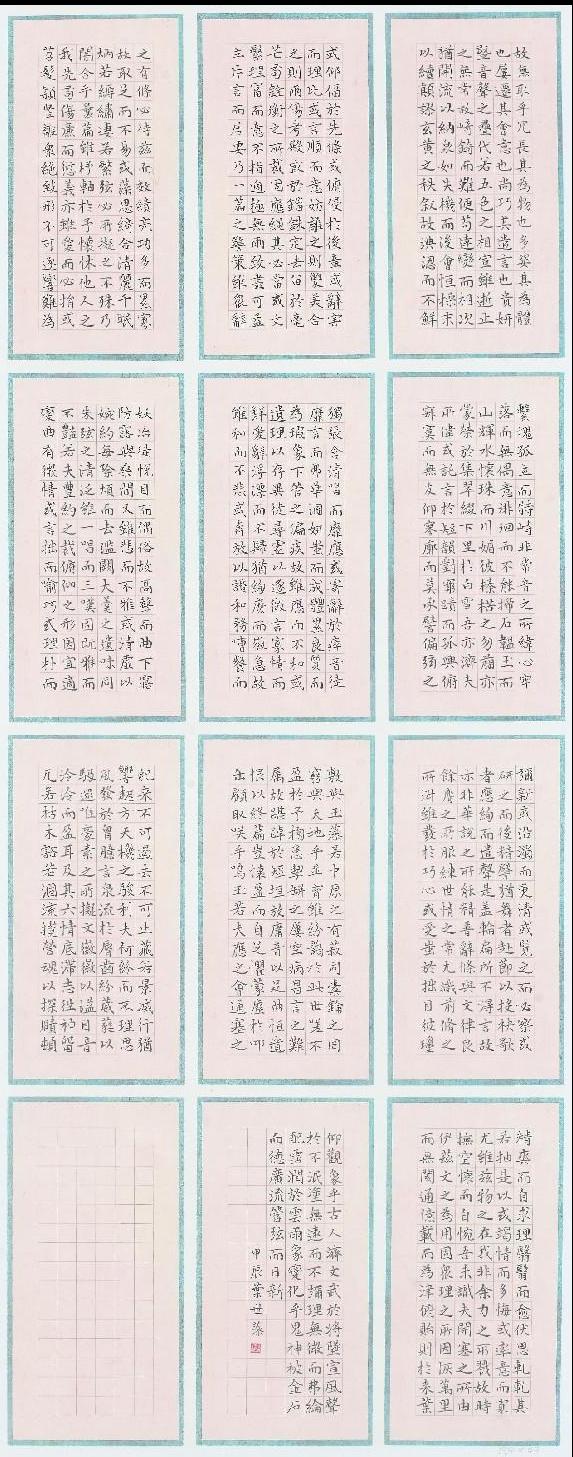 故無取乎冗長其為物也多姿其為體
也屢遷其會意也尚巧其遣言也貴妍
暨音聲之迭代若五色之相宣雖逝止
之無常故崎錡而難便苟達變而相次
猶開流以納泉如失機而後會恒操末
以續顛謬玄黃之秩敘故淟涊而不鮮
或仰逼於先條或俯侵於後章或辭害
而理比或言順而意妨離之則雙美合
之則兩傷考殿最於錙銖定去留於毫
芒苟銓衡之所裁固應繩其必當或文
繁理富而意不指適極無兩致盡可益
立片言而居要乃一篇之警策雖眾辭
之有條必待茲而效績亮功多而累寡
故取足而不易或藻思綺合清麗千眠
炳若縟繡悽若繁絃必所擬之不殊乃
闇合乎曩篇雖杼軸於予懷怵他人之
我先苟傷廉而愆義亦雖愛而必捐或
苕發穎豎離眾絕致形不可逐響難為
繫塊孤立而特峙非常音之所緯心牢
落而無偶意徘徊而不能揥石韞玉而
山輝水懷珠而川媚彼榛楛之勿翦亦
蒙榮於集翠綴下里於白雪吾亦濟夫
所偉或託言於短韻對窮蹟而孤興俯
寂寞而無友仰寥廓而莫承譬偏絃之
獨張含清唱而靡應或寄辭於瘁音徒
靡言而弗華混妍蚩而成體累良質而
為瑕象下管之偏疾故雖應而不和或
遺理以存異徒尋虛以逐微言寡情而
鮮愛辭浮漂而不歸猶絃么而徽急故
雖和而不悲或奔放以諧和務嘈囋而
妖冶徒悅目而偶俗故高聲而曲下寤
防露與桑間又雖悲而不雅或清虛以
婉約每除煩而去濫闕大羹之遺味同
朱絃之清氾雖一唱而三嘆固既雅而
不豔若夫豐約之裁俯仰之形因宜適
變曲有微情或言拙而喻巧或理朴而
彌新或沿濁而更清或覽之而必察或
研之而後精譬猶舞者赴節以投袂歌
者應絃而遣聲是蓋輪扁所不得言故
亦非華說之所能精普辭條與文律良
餘膺之所服練世情之常尤識前脩之
所淑雖發於巧心或受蚩於拙目彼瓊
敷與玉藻若中原之有菽同橐籥之罔
窮與天地乎並育雖紛藹於此世嗟不
盈於予掬患挈缾之屢空病昌言之難
屬故踸踔於短垣放庸音以足曲恒遺
恨以終篇豈懷盈而自足懼蒙塵於叩
缶顧取笑乎鳴玉若夫應之會通塞之
紀來不可遏去不可止藏若景滅行猶
響起方天機之駿利夫何紛而不理思
風發於胸臆言泉流於脣齒紛葳蕤以
馺遝唯豪素之所擬文徽徽以溢目音
泠泠而盈耳及其六情底滯志往神留
兀若枯木豁若涸流攬營魂以探賾頓
精爽而自求理翳翳而愈伏思軋軋其
若抽是以或竭情而多悔或率意而寡
尤雖茲物之在我非余力之所戮故時
撫空懷而自惋吾未識夫開塞之所由
伊茲文之為用固眾理之所因恢萬里
而無閡通億載而為津俯貽則於來葉
仰觀象乎古人濟文武於將墜宣風聲
於不泯塗無遠而不彌理無微而弗綸
配霑潤於雲雨象變化乎鬼神被金石
而德廣流管弦而日新
甲辰葉世